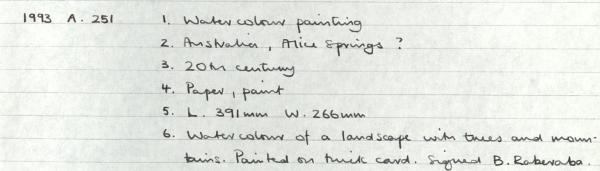 1993 A. 251 1. Watercolour painting
2. Australia, Alice Springs ?
3. 20th century
4. Paper, paint
5. L. 391mm W. 266mm
6. Watercolour of a landscape with trees and moun-
tains. Painted on thick card. Signed B. Raberaba.